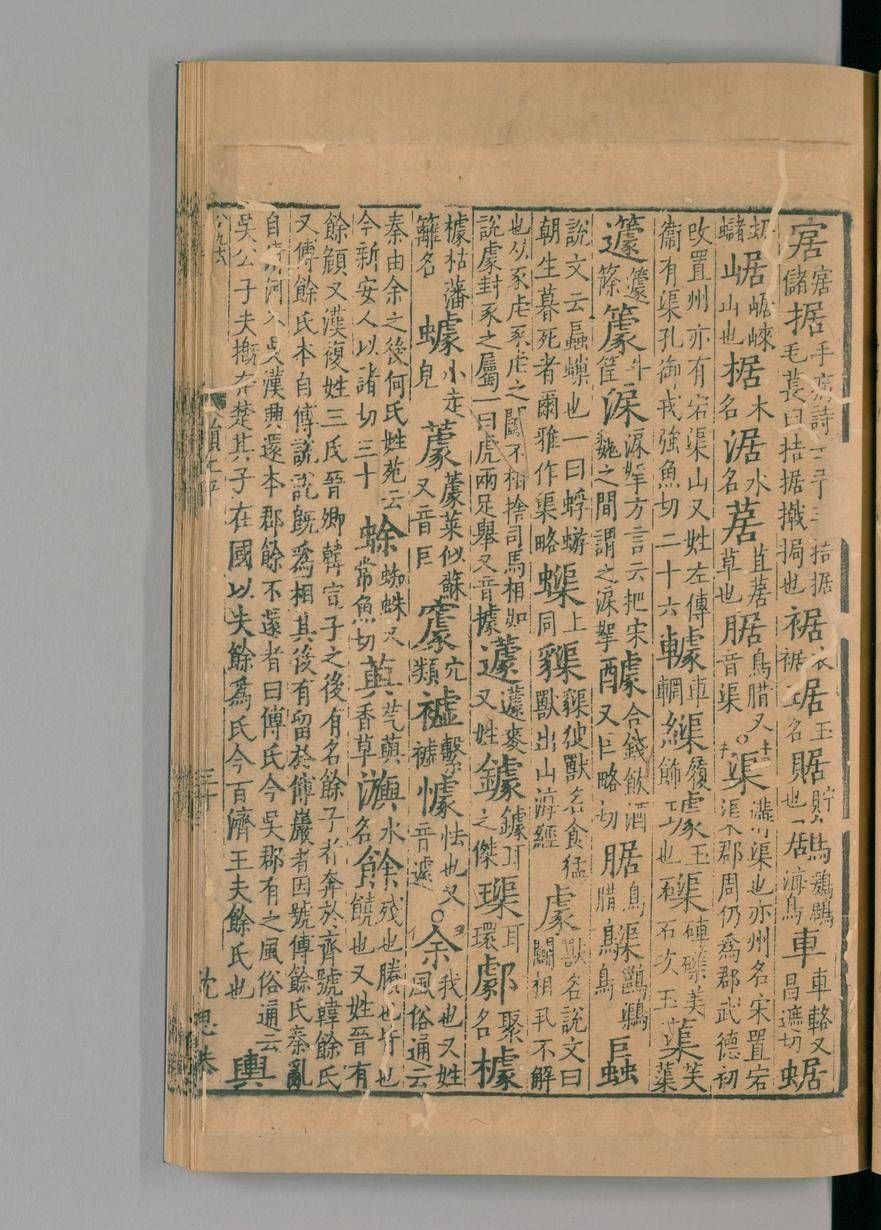 㝒㝒儲据手病詩云予手拮据毛萇曰拮据撠挶也裾衣裾琚玉名䝻貯也鶋鶢鶋海鳥車車輅又昌遮切蜛
蜛蠩崌崌崍山也椐木名涺水名蒩苴蒩草也腒鳥腊又音渠○渠溝渠也亦州名宋置宕渠郡周仍爲郡武德初
改置州亦有宕渠山又姓左傳衞有渠孔御戎強魚切二十六車輞履飾璩玉也磲硨磲美石次玉蕖芙蕖
籧篨牛筐淭淭挐方言云把宋魏之間謂之淭挐醵合錢飲酒又巨略切腒鳥腊
說文云螶蟝也一曰蜉蝣朝生暮死者爾雅作渠略蟝上同獸名食猛獸出山海經豦獸名說文曰鬬相丮不解
也从豕虍豕虍之鬬不相捨司馬相如說豦封豕之屬一曰虎兩足舉又音據蘧蘧麥又姓鐻鐻耳之傑璖耳環聚名
枯藩籬名小走皃似蘇又音巨穴類懅怯也又音遽○余我也又姓風俗通云
秦由余之後何氏姓苑云今新安人以諸切三十蜍蜘蛛又常魚切香草水名餘殘也賸也皆也饒也又姓晉有
餘頠又漢複姓三氏晉卿韓宣子之後有名餘子者奔於齊號韓餘氏又傅餘氏本自傅說說旣爲相其後有留於傅巖者因號傅餘氏秦亂
自清河入吳漢興還本郡餘不還者曰傅氏今吳郡有之風俗通云吳公子夫摡奔楚其子在國以夫餘爲氏今百濟王夫餘氏也輿
八九六
韻上平
三十
沈思恭